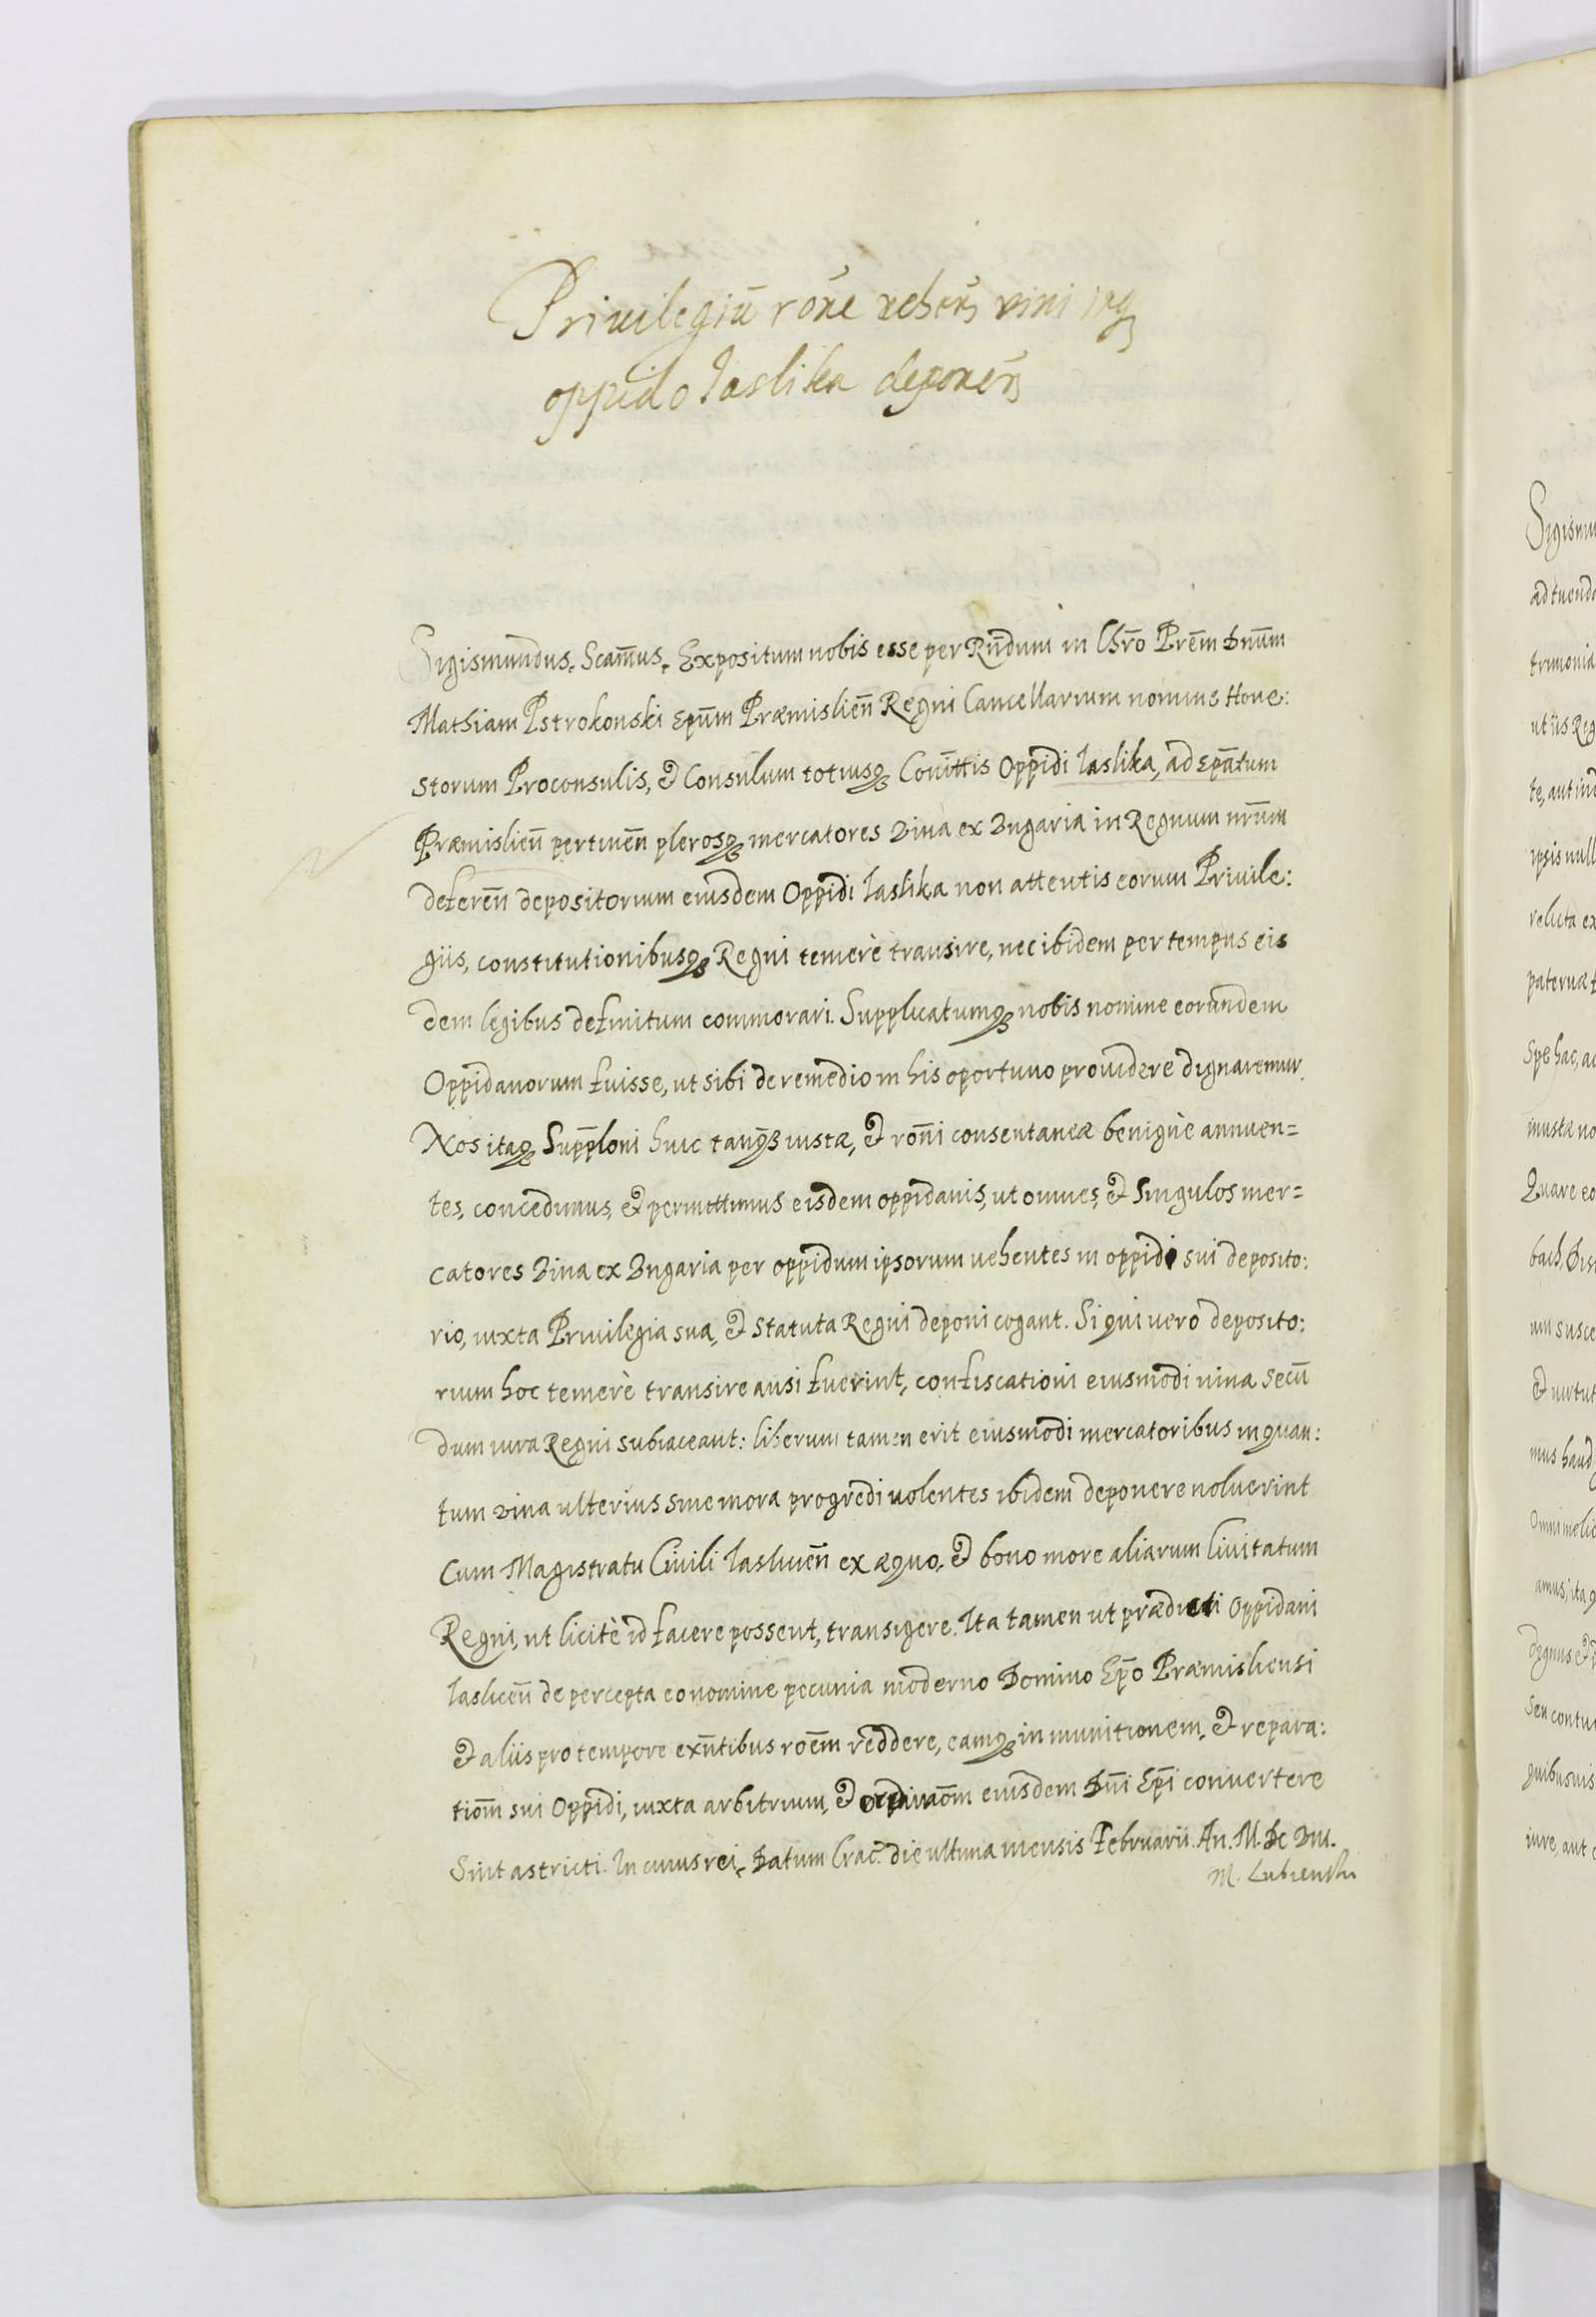 Priuilegiū rōne veheñ vini in
oppido Iaslika deponeñ
Sigismundus. Scam̄us. Expositum nobis esse per Rn̄dum in Chr̄o Prēm Dn̄um
Mathiam Pstrokonski Epūm Præmislien̄ Regni Cancellarium nomine Hone:
storum Proconsulis, & Consulum totiusq; Com̄ittis Oppidi Iaslika, ad Epātum
Præmislien̄ pertinen̄ plerosq; mercatores Vina ex Vngaria in Regnum nr̄um
deferen̄ depositorium eiusdem Oppidi Iaslika non attentis eorum Priuile:
giis, constitutionibusq; Regni temerè transire, nec ibidem per tempus eis
dem legibus definitum commorari. Supplicatumq; nobis nomine eorundem
Oppidanorum fuisse, ut sibi de remedio in his oportuno prouidere dignaremur.
Nos itaq; Supp̄loni huic tanq; iustæ, & ron̄i consentaneæ benignè annuen=
tes, concedimus, & permittimus eisdem oppidanis, ut omnes, & Singulos mer=
catores Vina ex Vngaria per oppidum ipsorum uehentes in oppidi sui deposito:
rio, iuxta Priuilegia sua, & Statuta Regni deponi cogant. Si qui uero deposito:
rium hoc temerè transire ausi fuerint, confiscationi eiusmodi uina secū
dum iura Regni subiaceant: liberum tamen erit eiusmodi mercatoribus inquan:
tum vina ulterius sine mora progredi uolentes ibidem deponere noluerint
Cum Magistratu Ciuili Iaslicen̄ ex æquo, & bono more aliarum Ciuitatum
Regni, ut licitè id facere possent, transigere. Ita tamen ut prædicti Oppidani
Iaslicen̄ de percepta eo nomine pecunia moderno Domino Ep̄o Præmisliensi
& aliis pro tempore exn̄tibus roēm reddere, eamq; in munitionem, & repara:
tiom̄ sui Oppidi, iuxta arbitrium, & ordinaōm eiusdem Dn̄i Ep̄i conuertere
Sint astricti. In cuius rei. Datum Crac. die ultima mensis Februarii. An. M. DC VII.
M. Lubienski
Sigismu
ad tuenda
trimonia
ut iis Reg
te, aut ind
ipsis null
ueluta ex
paternæ
Spe hac, ac
inustæ no
Quare eo
bach, Dis
um susce
& uirtut
mus haud
Omni melio
amus, itaq
degnus &
Seu contu
quibusuis
iure, aut